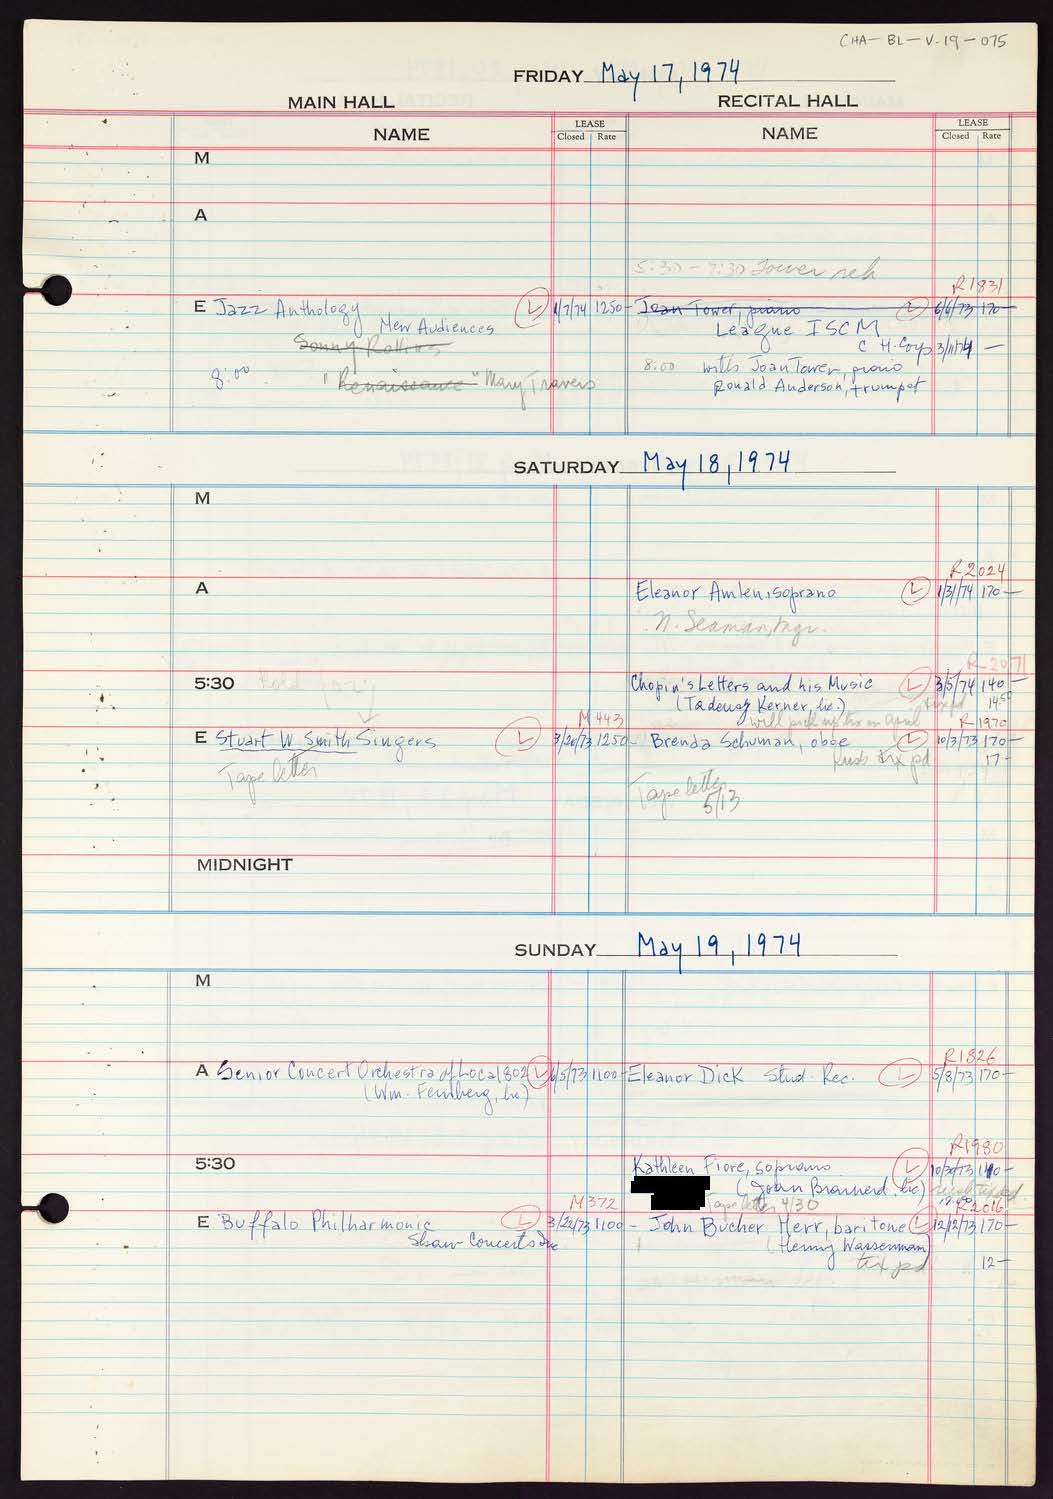 CHA-BL-V-19-075
FRIDAY May 17, 1974
MAIN HALL RECITAL HALL
NAME LEASE Closed Rate NAME LEASE Closed Rate
M
A
5:30 - 7:30 Tower reh
R1831
E Jazz Anthology L 1/7/74 1250- Joan Tower, piano L 6/6/73 170-
New Audiences League ISCM
Sonny Rollins C H. Corp 3/11/74 -
8:00 "Renaissance" Mary Travers 8:00 with Joan Tower, piano
Ronald Anderson, trumpet
SATURDAY May 18, 1974
M
R2024
A Eleanor Amlen, soprano L 1/31/74 170-
N. Seaman, mgr.
R-2071
5:30 Hold Chopin's Letters and his Music L 3/5/74 140-
(Tadeusz Kerner, Inc.) 14.50
M443 will pick up tix on April R-1970
E Stuart W Smith Singers L 3/20/73 1250- Brenda Schuman, oboe L 10/3/73 170-
Tape letter tix pd 17-
Tape letter
5/13
MIDNIGHT
SUNDAY May 19, 1974
M
R1826
A Senior Concert Orchestra of Local 802 L 6/5/73 1100- Eleanor Dick Stud. Rec. L 5/8/73 170-
(Wm. Feinberg, Inc)
R1980
5:30 Kathleen Fiore, soprano L 10/30/73 140-
(Joan Brainerd, Inc)
M372 Tape letter 4/30 R2016
E Buffalo Philharmonic L 3/22/73 1100- John Bucher Merr, baritone L 12/12/73 170-
Shaw Concerts Inc (Henny Wasserman)
tix pd 12-